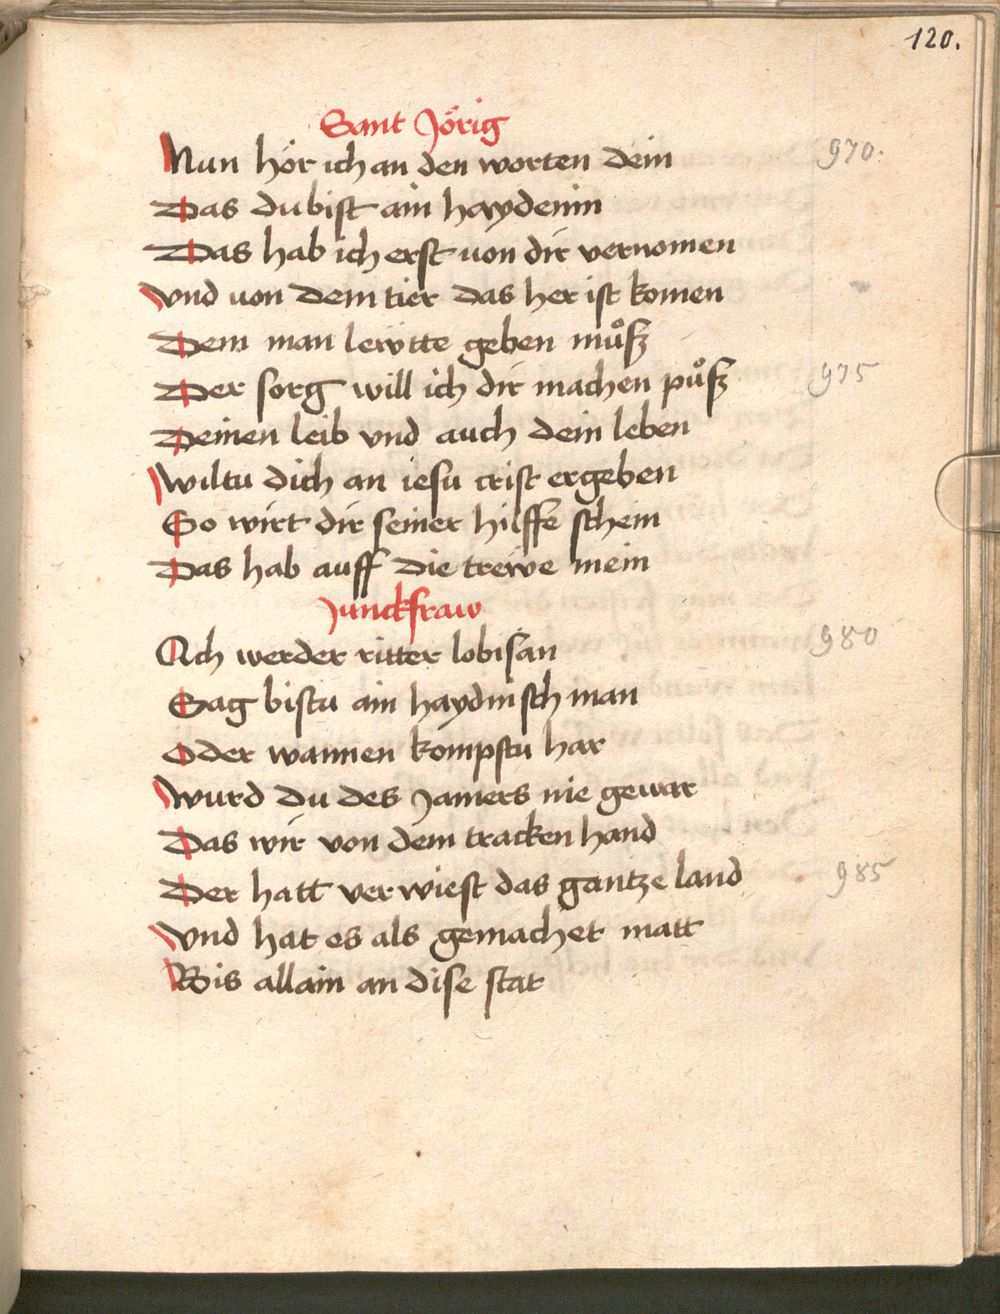 120.
Sant Jörig
Nun hör ich an den worten dein 970.
Das du bist ain haydenin
Das hab ich erst von dir vernomen
Vnd von dem tier das her ist komen
Dem man lewtte geben můsz
Der sorg will ich dir machen půsz 975
Deinen leib vnd auch dein leben
Wiltu dich an iesu crist ergeben
So wirt dir seiner hilffe schein
Das hab auff die trewe mein
Junckfraw
Ach werder ritter lobisan 980
Sag bistu ain haydnisch man
Oder wannen kompstu har
Wurd du des Jamers nie gewar
Das wir von dem tracken hand
Der hatt verwiest das gantze land 985
Vnd hat es als gemachet matt
Bis allain an dise stat